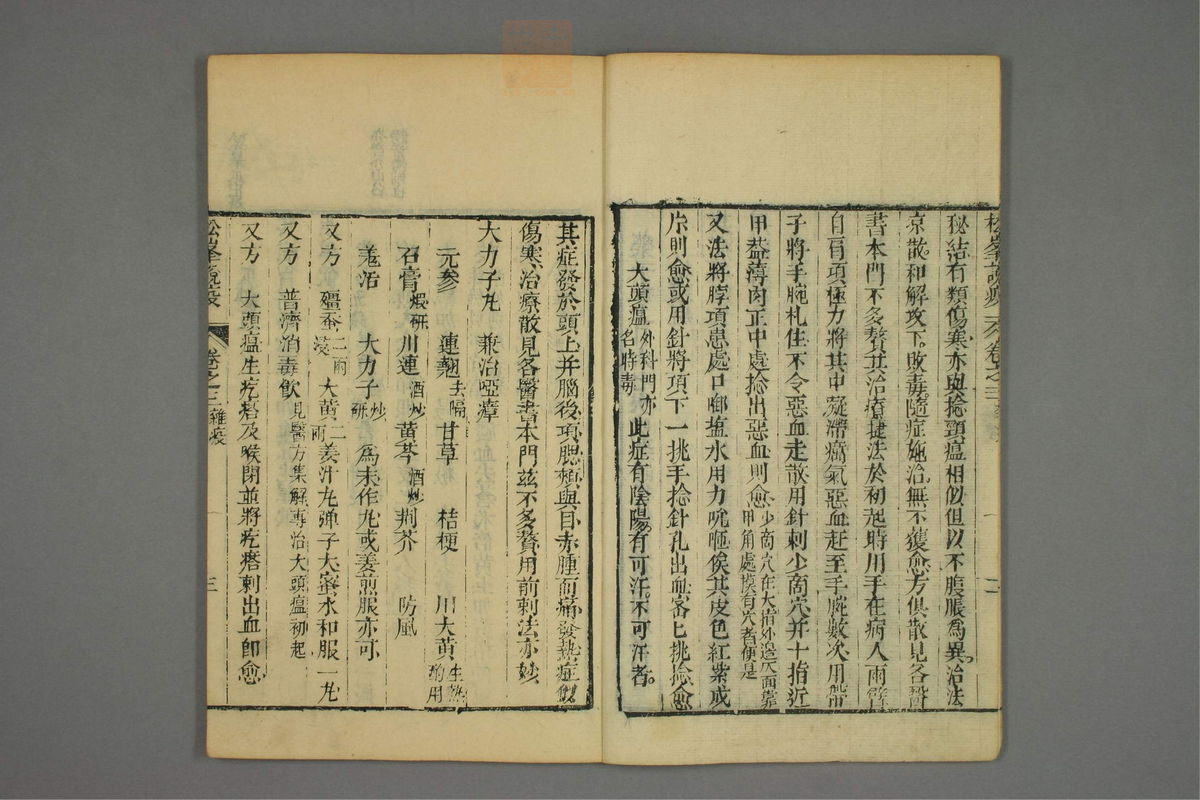 松峯說疫 卷之三 二
秘結有類傷寒亦與捻頸瘟相似但以不腹脹為異治法
京散和解攻下敗毒隨症施治無不獲愈方俱散見各醫
書本門不多贅其治療捷法於初起時用手在病人兩臂
自肩項極力將其中凝滯癘氣惡血赶至手腕數次用帶
子將手腕札住不令惡血走散用針刺少商穴并十指近
甲盡薄肉正中處捻出惡血則愈少商穴在大指外邊仄面靠
甲角處摸有穴者便是
又法將脖項患處口啣塩水用力吮咂俟其皮色紅紫成
片則愈或用針將項下一挑手捻針孔出血密匕挑捻愈
大頭瘟外科門亦
名時毒此症有陰陽有可汗不可汗者
其症發於頭上并腦後項腮頰與目赤腫而痛發熱症似
傷寒治療散見各醫書本門茲不多贅用前刺法亦妙
大力子丸 兼治啞瘴
元參 連翹去隔 甘草 桔梗 川大黃生熟
酌用
石膏煅研 川連酒炒 黃芩酒炒 荆芥 防風
羗活 大力子炒
研 為末作丸或姜煎服亦可
又方 殭蚕二兩 大黃二
兩 姜汁丸弹子大蜜水和服一丸
又方 普濟消毒飲見醫方集解專治大頭瘟初起
又方 大頭瘟生疙瘩及喉閉並將疙瘩刺出血即愈
松峯說疫 卷之三雜疫 三